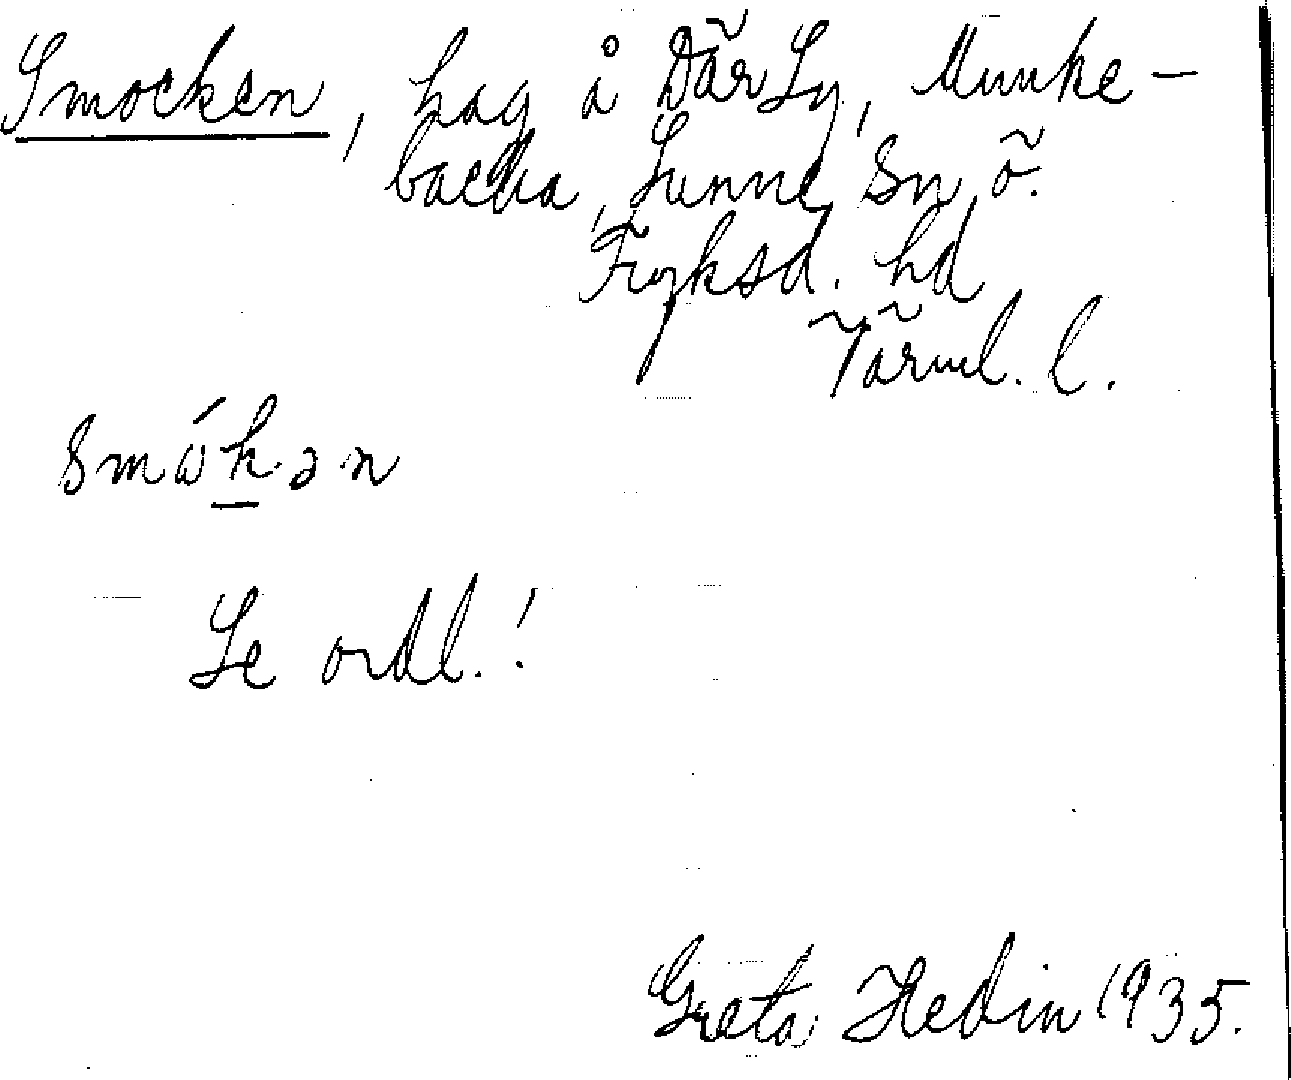 Smocken, hag å Där Ly, Munke-
backa, Sunne, Sn ö.
Fryksd. hd
Värml. l.
smώk̲ən
Se ordl.!
Greta Hedin 1935.